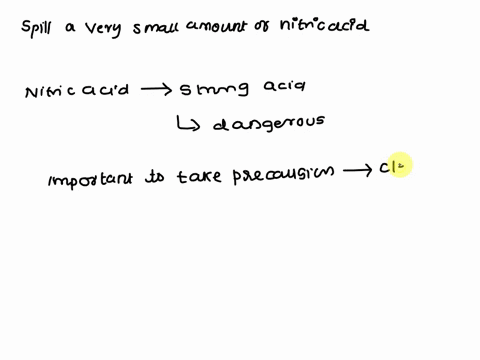 Spill a very small amount of nitric acid
Nitric acid → strong acid
↳ dangerous
important to take precausion → cl